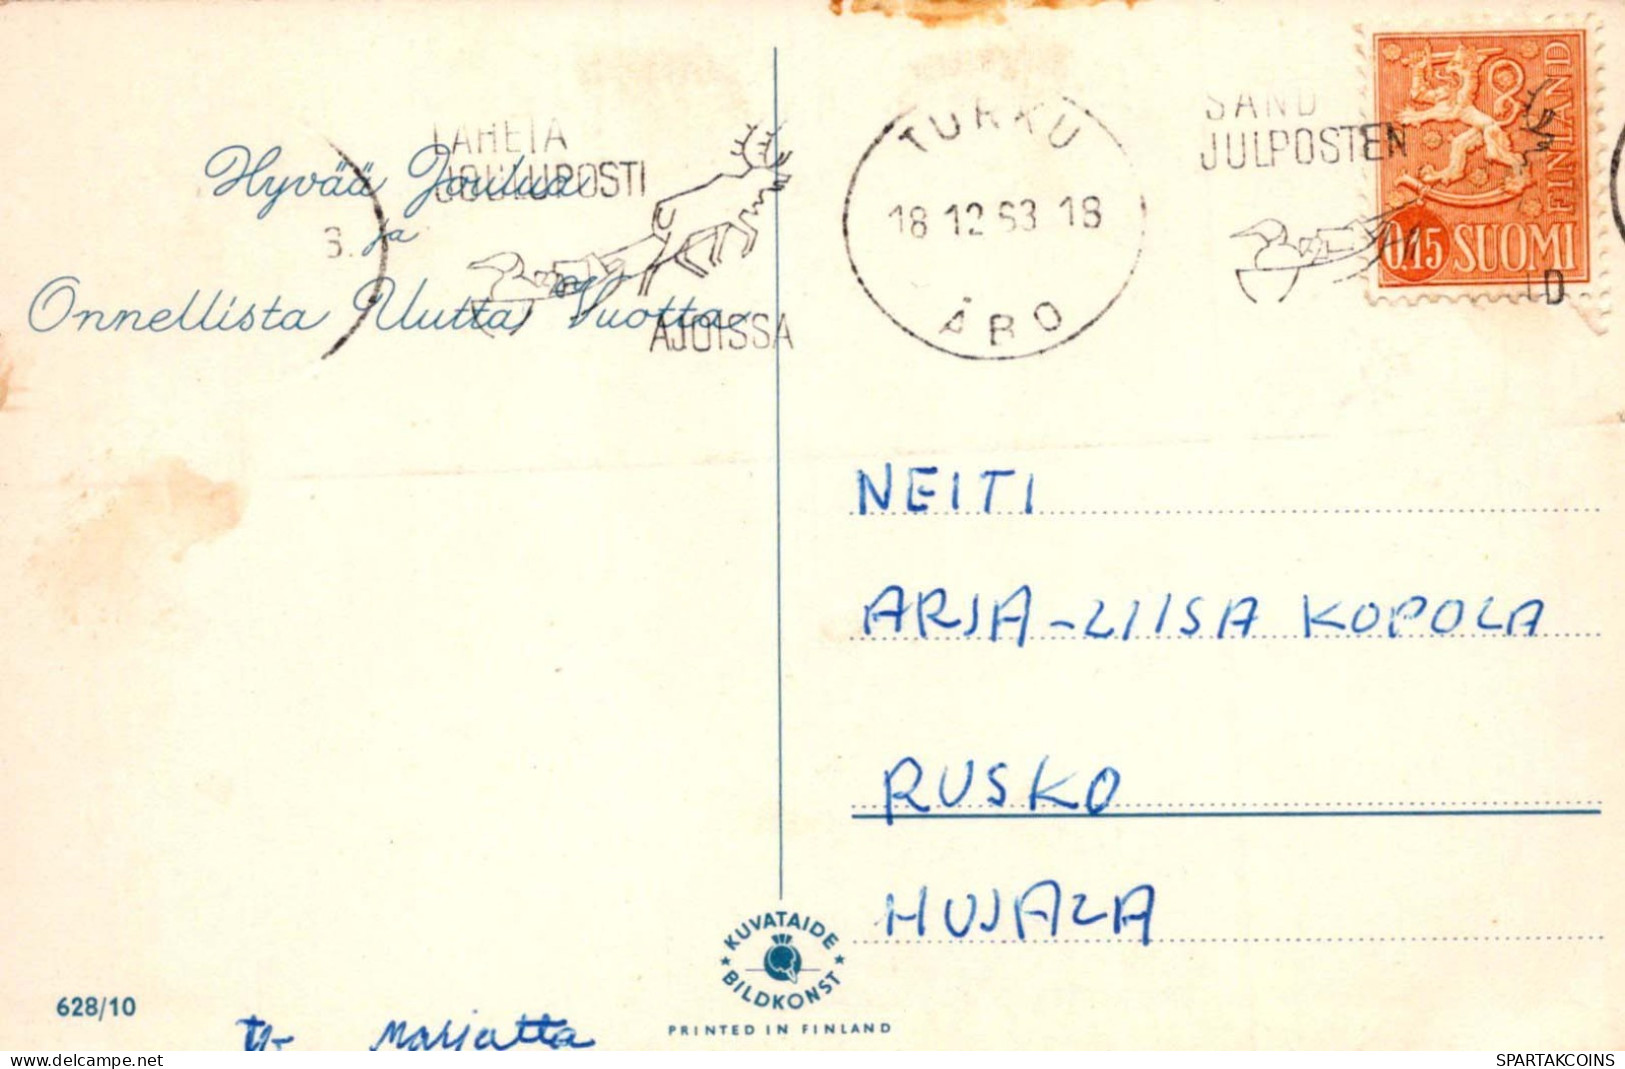 LÄHETÄ
JOULUPOSTI
AJOISSA
TURKU
18.12.63.18
ÅBO
SÄND
JULPOSTEN
FINLAND
0,15 SUOMI
Hyvää Joulua
ja
Onnellista Uutta Vuotta
NEITI
ARJA-LIISA KOPOLA
RUSKO
HUJALA
KUVATAIDE
BILDKONST
PRINTED IN FINLAND
628/10
Marjatta
delcampe.net
SPARTAKCOINS